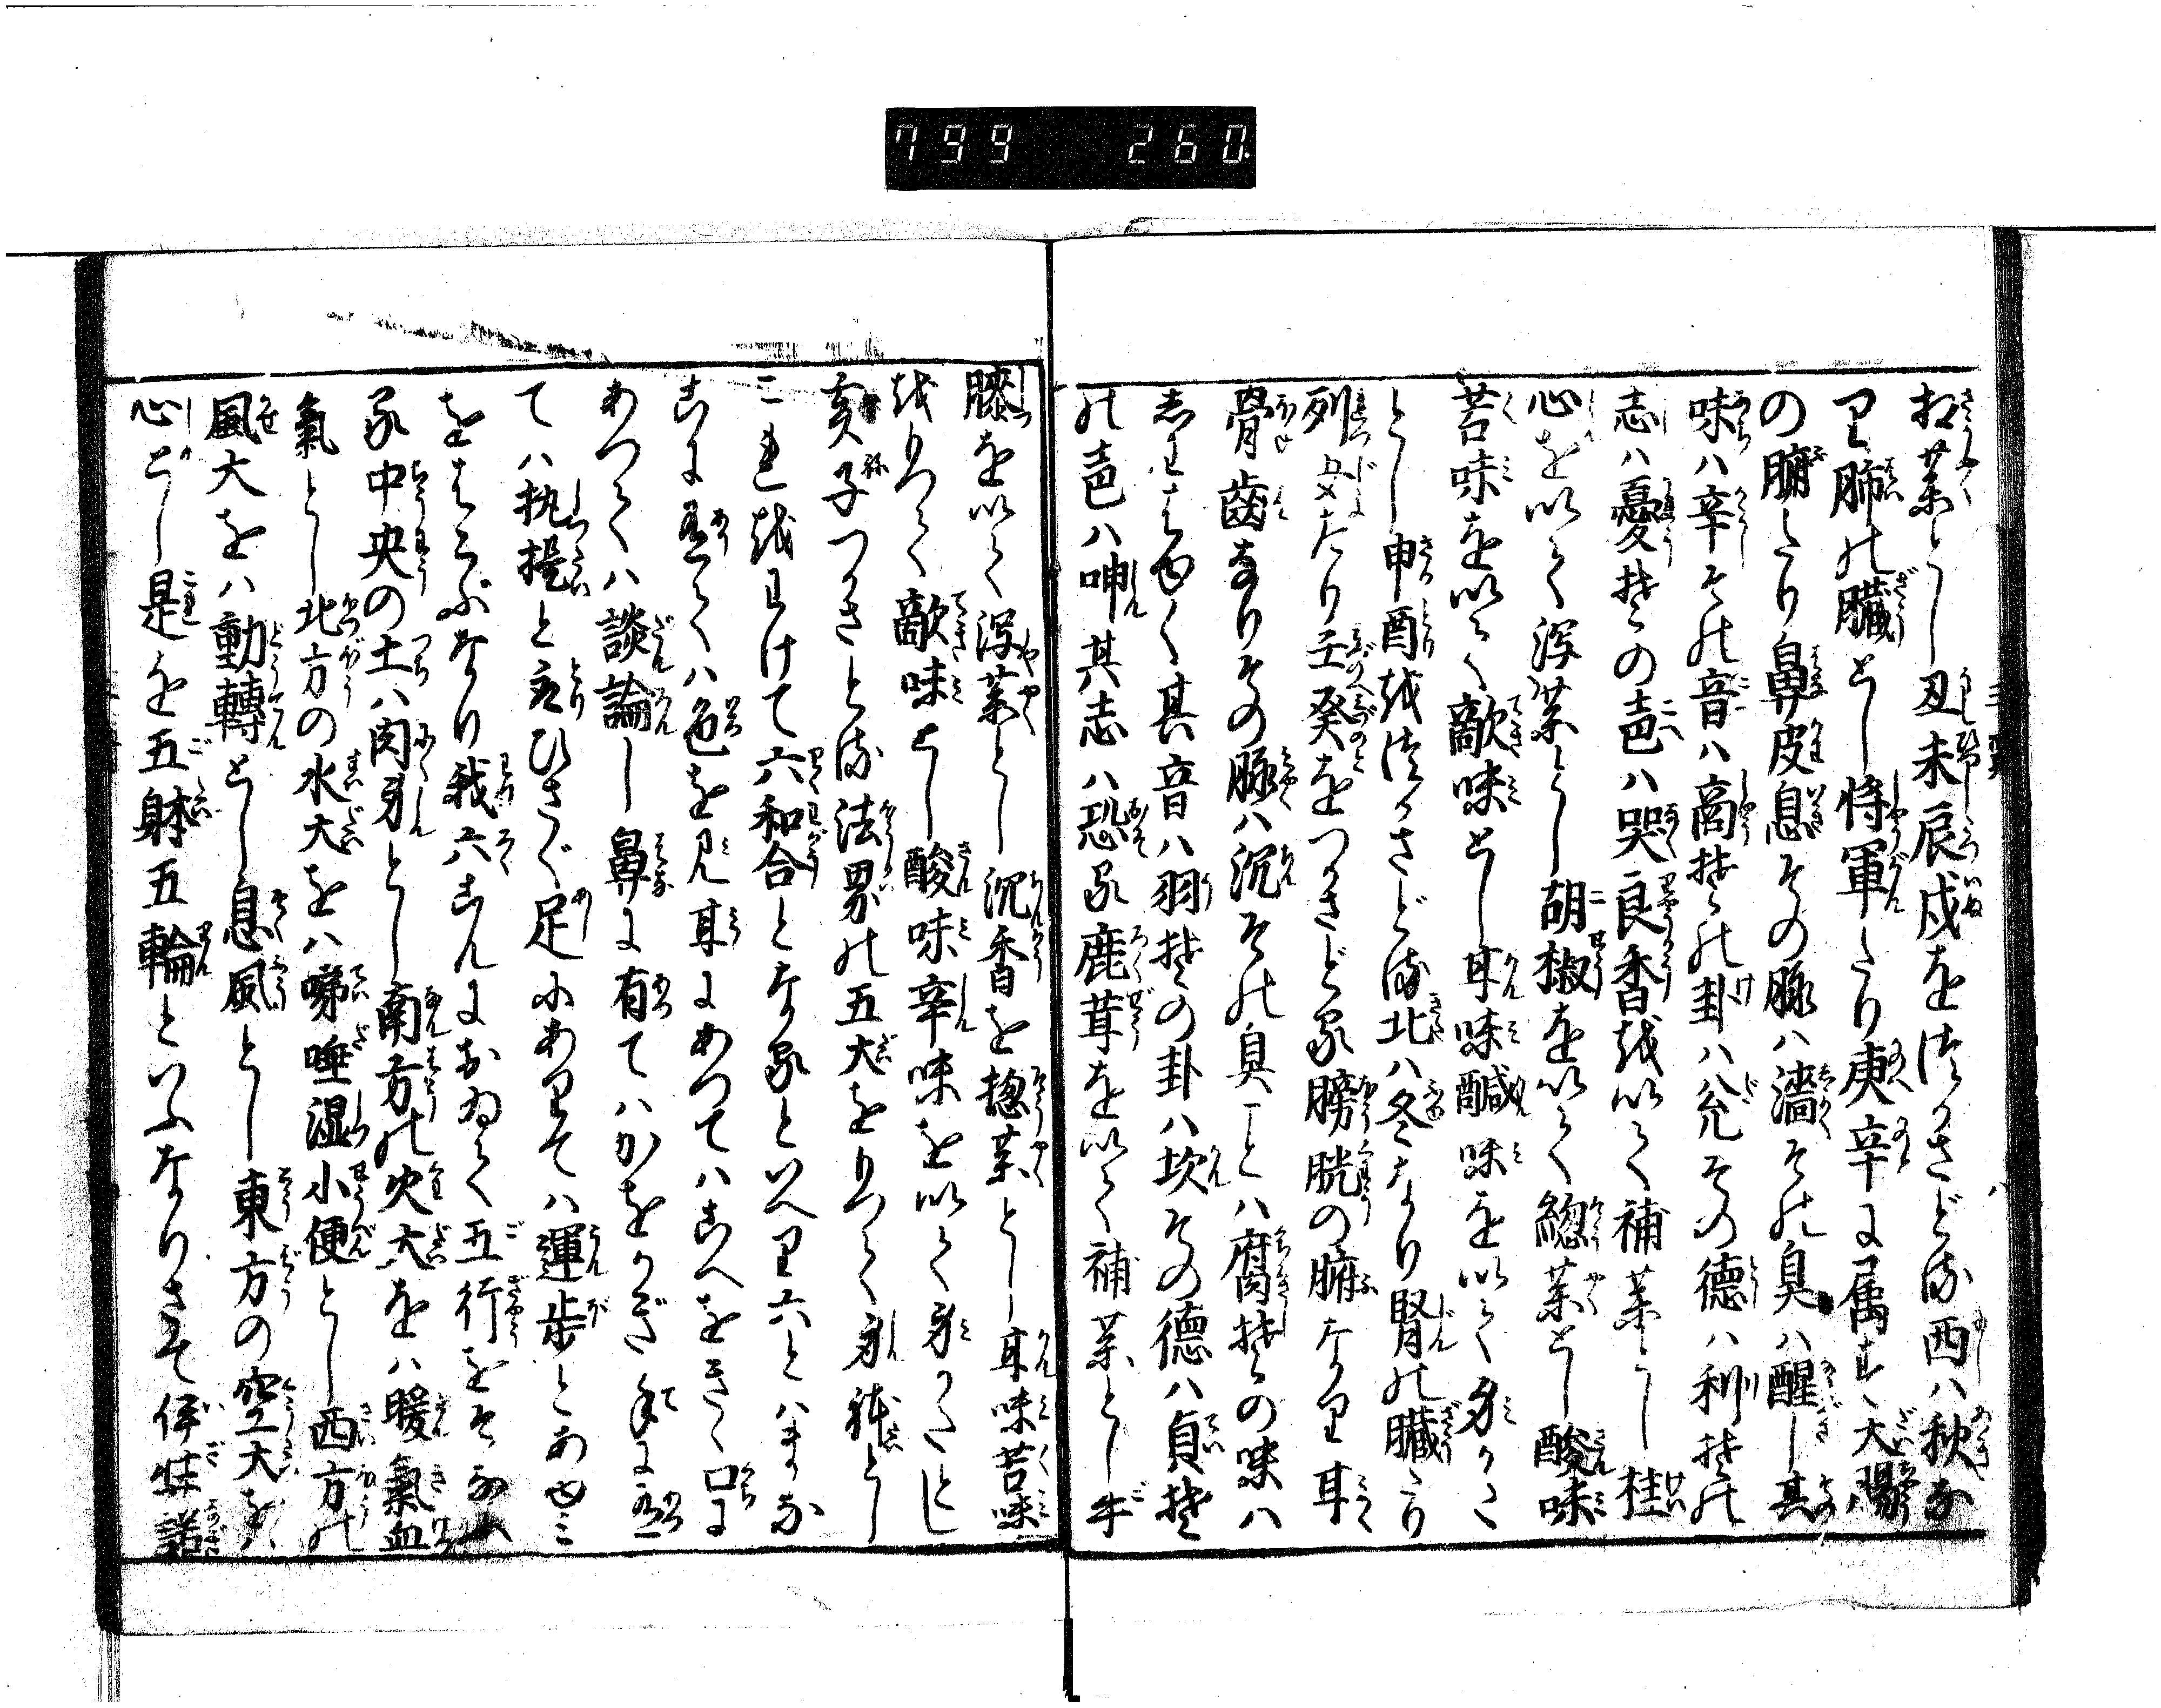 799 260.
相薬とし丑未辰戌をつかさどる西ハ秋な
り肺の臓とし将軍たり庚辛に属す大腸
の腑たり鼻皮息その脉ハ濇その臭ハ醒し其
味ハ辛その音ハ商其の卦ハ兌その徳ハ利其の
志ハ憂其の声ハ哭良香を以て補薬とし桂
心を以て瀉薬とし胡椒を以て総薬とし酸味
苦味を以て敵味とし耳味醎味を以て身かた
とし申酉をつかさどる北ハ冬なり腎の臓たり
列女たり壬癸をつかさどる膀胱の腑なり耳
骨歯なりその脉ハ沉その臭ことハ腐其の味ハ
しはゆく其音ハ羽其の卦ハ坎その徳ハ貞其
の声ハ呻其志ハ恐る鹿茸を以て補薬とし牛
膝を以て瀉薬とし沉香を揔薬とし耳味苦味
をもつて敵味とし酸味辛味を以て身かたとし
亥子つかさとる法界の五大をもつて身躰とし
これをわけて六和合となるといへり六とハまな
こに有てハ色を見耳にあつてハこへをきく口に
あつてハ談論し鼻に有てハかをかぎ手に有
てハ執捉ととりひさぐ足にありてハ運歩とあゆミ
をはこぶなり我六こんにおゐて五行をそなふ
る中央の土ハ肉身とし南方の火大をハ暖氣血
氣とし北方の水大をハ啼唾湿小便とし西方の
風大をハ動轉とし息風とし東方の空大をハ
心とし是を五躰五輪といふなりさて伊弉諾